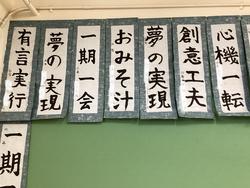 心機一転
創意工夫
夢の実現
おみそ汁
一期一会
夢の実現
有言実行
一期